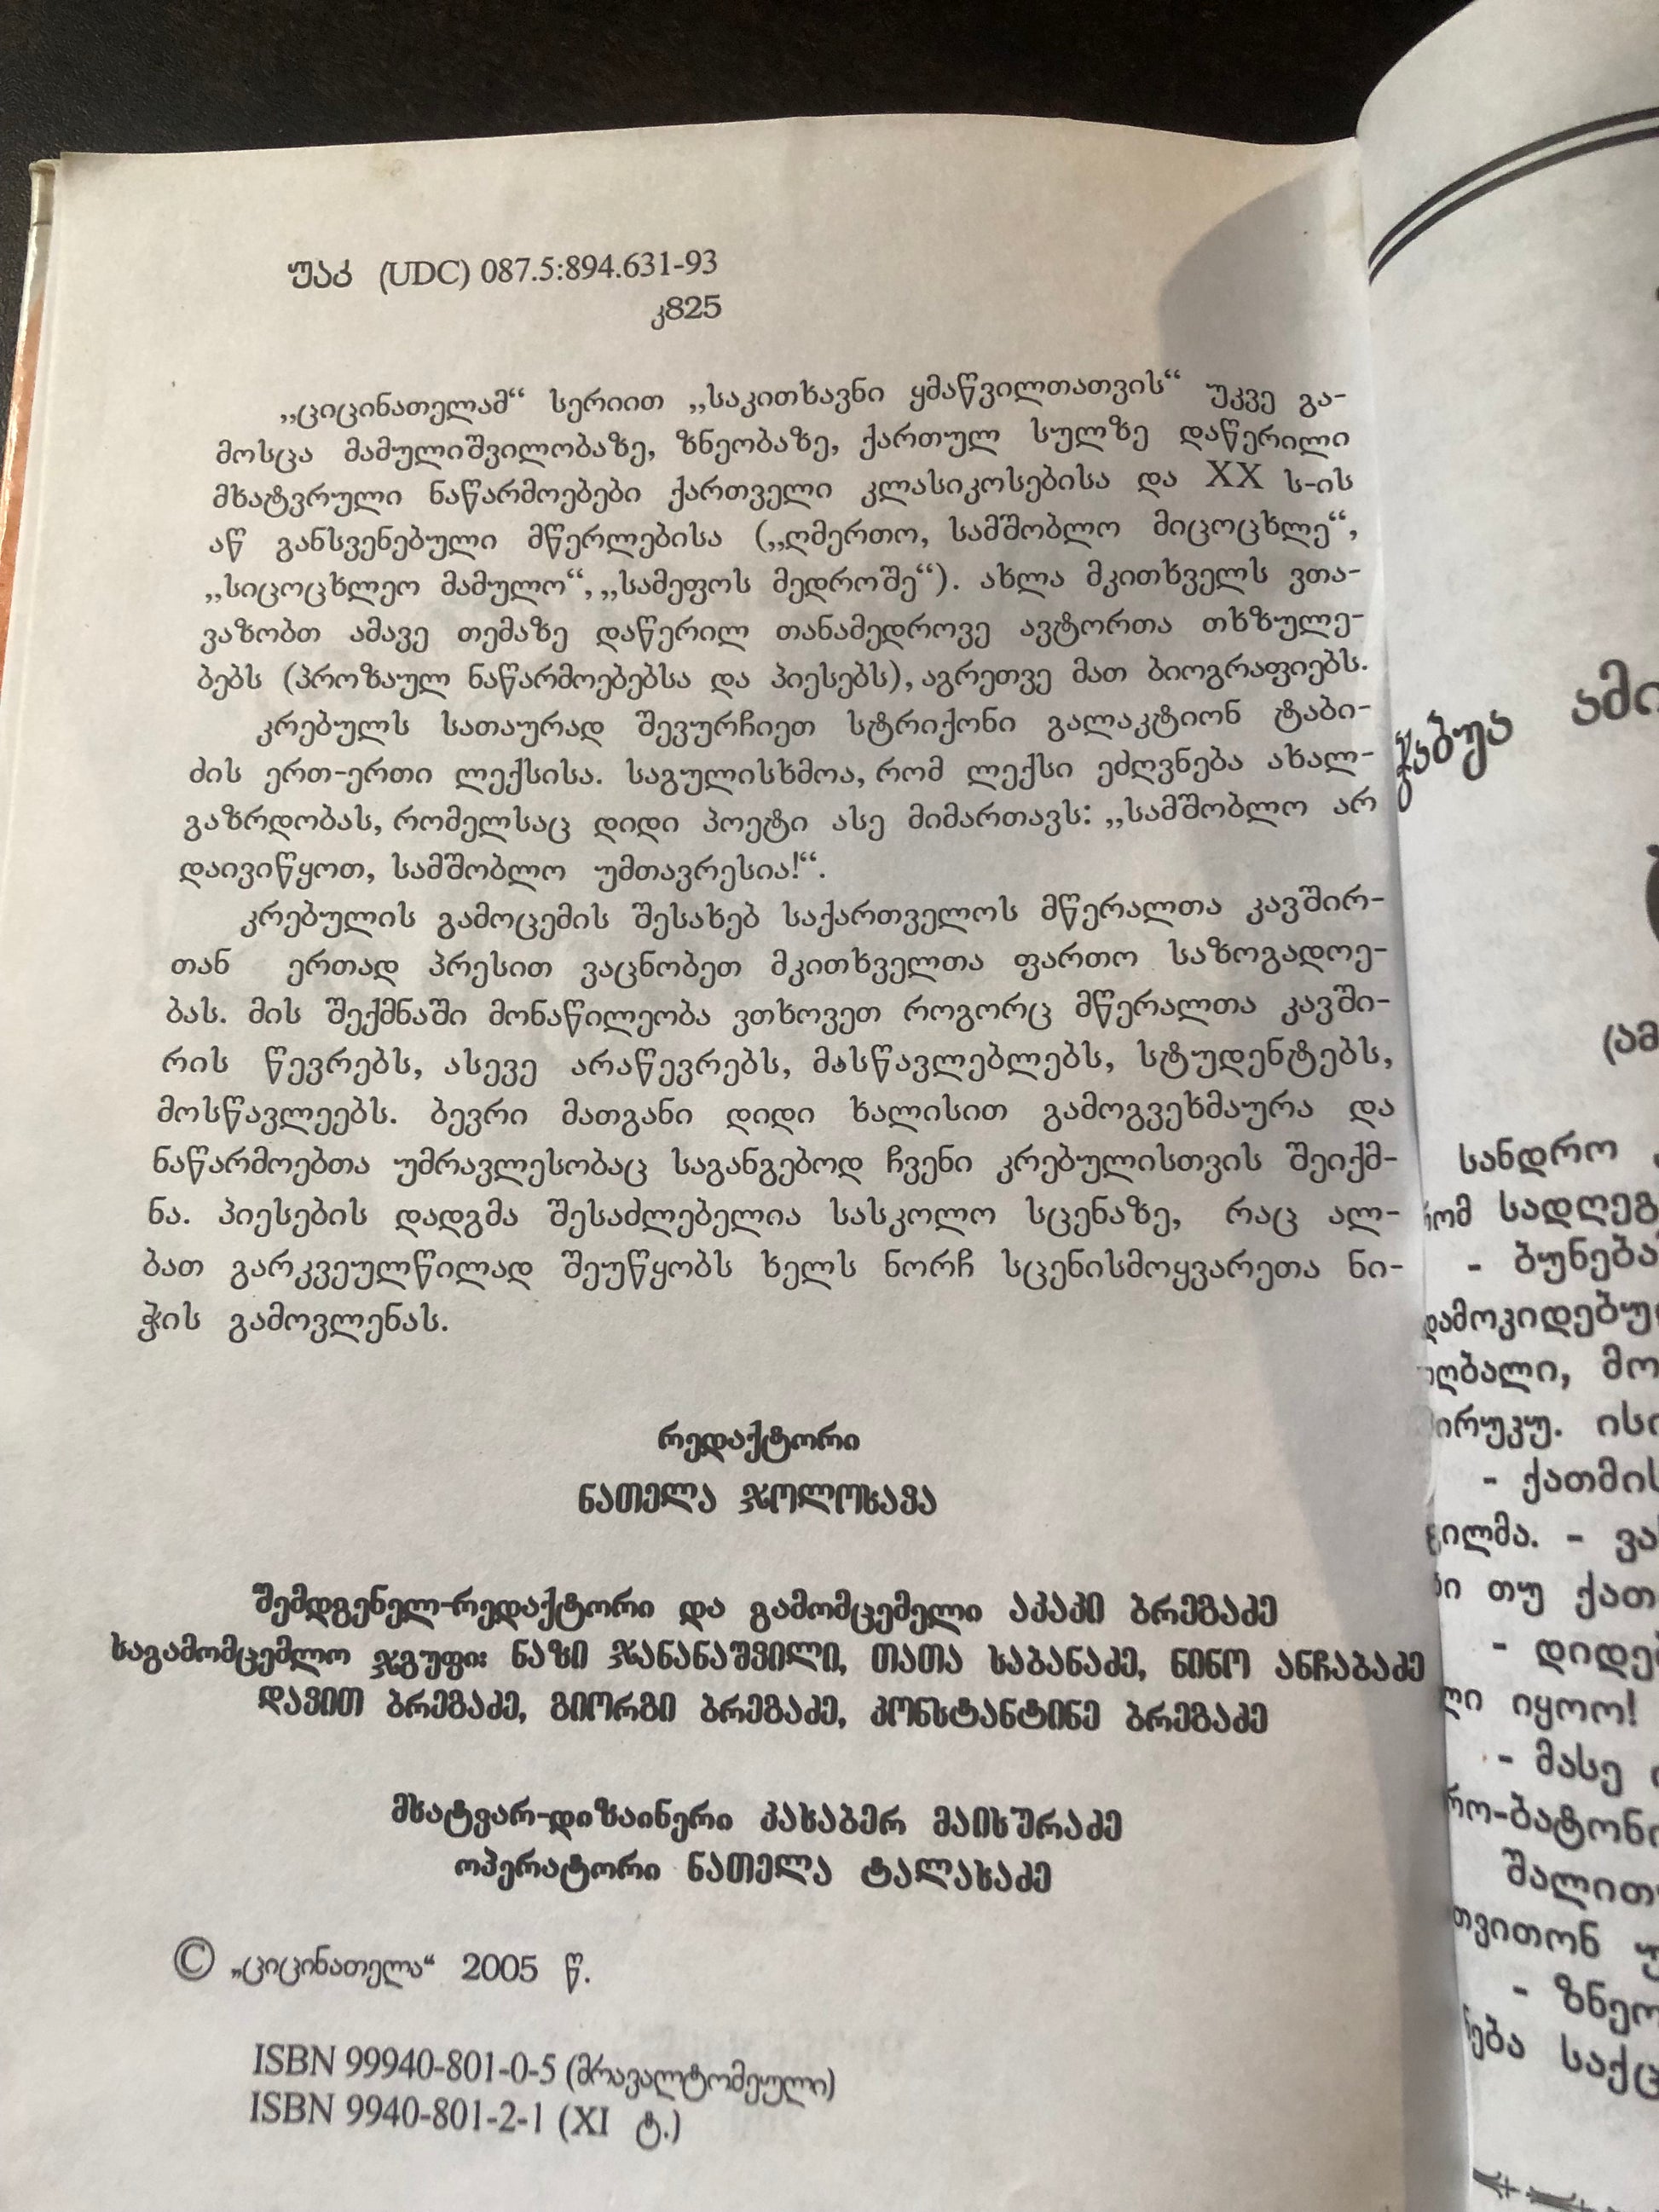 უაკ (UDC) 087.5:894.631-93
კ825
„ციცინათელამ“ სერიით „საკითხავნი ყმაწვილთათვის“ უკვე გა-
მოსცა მამულიშვილობაზე, ზნეობაზე, ქართულ სულზე დაწერილი
მხატვრული ნაწარმოებები ქართველი კლასიკოსებისა და XX ს-ის
აწ განსვენებული მწერლებისა („ღმერთო, სამშობლო მიცოცხლე“,
„სიცოცხლეო მამულო“, „სამეფოს მედროშე“). ახლა მკითხველს ვთა-
ვაზობთ ამავე თემაზე დაწერილ თანამედროვე ავტორთა თხზულე-
ბებს (პროზაულ ნაწარმოებებსა და პიესებს), აგრეთვე მათ ბიოგრაფიებს.
კრებულს სათაურად შევურჩიეთ სტრიქონი გალაკტიონ ტაბი-
ძის ერთ-ერთი ლექსისა. საგულისხმოა, რომ ლექსი ეძღვნება ახალ-
გაზრდობას, რომელსაც დიდი პოეტი ასე მიმართავს: „სამშობლო არ
დაივიწყოთ, სამშობლო უმთავრესია!“.
კრებულის გამოცემის შესახებ საქართველოს მწერალთა კავშირ-
თან ერთად პრესით ვაცნობეთ მკითხველთა ფართო საზოგადოე-
ბას. მის შექმნაში მონაწილეობა ვთხოვეთ როგორც მწერალთა კავში-
რის წევრებს, ასევე არაწევრებს, მასწავლებლებს, სტუდენტებს,
მოსწავლეებს. ბევრი მათგანი დიდი ხალისით გამოგვეხმაურა და
ნაწარმოებთა უმრავლესობაც საგანგებოდ ჩვენი კრებულისთვის შეიქმ-
ნა. პიესების დადგმა შესაძლებელია სასკოლო სცენაზე, რაც ალ-
ბათ გარკვეულწილად შეუწყობს ხელს ნორჩ სცენისმოყვარეთა ნი-
ჭის გამოვლენას.
რედაქტორი
ნათელა ჯოლოხავა
შემდგენელ-რედაქტორი და გამომცემელი აკაკი ბრეგაძე
საგამომცემლო ჯგუფი: ნაზი ჯანანაშვილი, თათა საბანაძე, ნინო ანჩაბაძე
დავით ბრეგაძე, გიორგი ბრეგაძე, კონსტანტინე ბრეგაძე
მხატვარ-დიზაინერი კახაბერ მაისურაძე
ოპერატორი ნათელა ტალახაძე
© „ციცინათელა“ 2005 წ.
ISBN 99940-801-0-5 (მრავალტომეული)
ISBN 9940-801-2-1 (XI ტ.)
ჭაბუა
სანდრო
სადღეგ
- ბუნება
მო
- ქათმის
- ვა
თუ ქათ
- დიდე
იყოო!
- მასე
შალით
- ზნეო
საქც